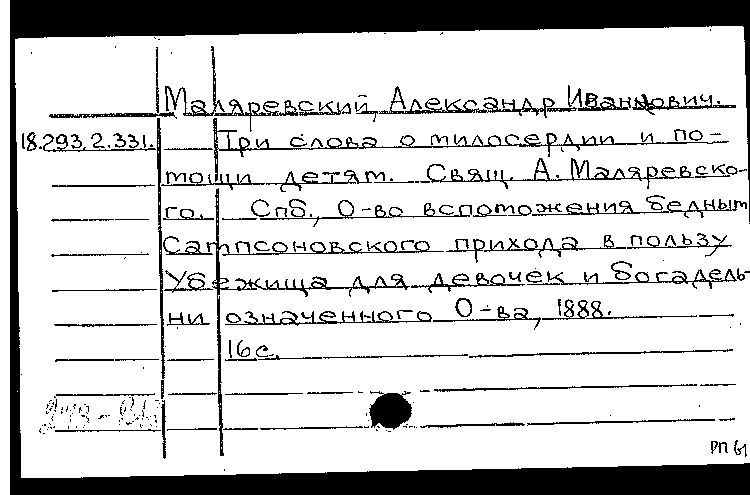 Маляревский, Александр Иванович.
18.293.2.331. Три слова о милосердии и по-
мощи детям. Свящ. А. Маляревско-
го. Спб., О-во вспоможения бедным
Сампсоновского прихода в пользу
Убежища для девочек и богадель-
ни означенного О-ва, 1888.
16с.